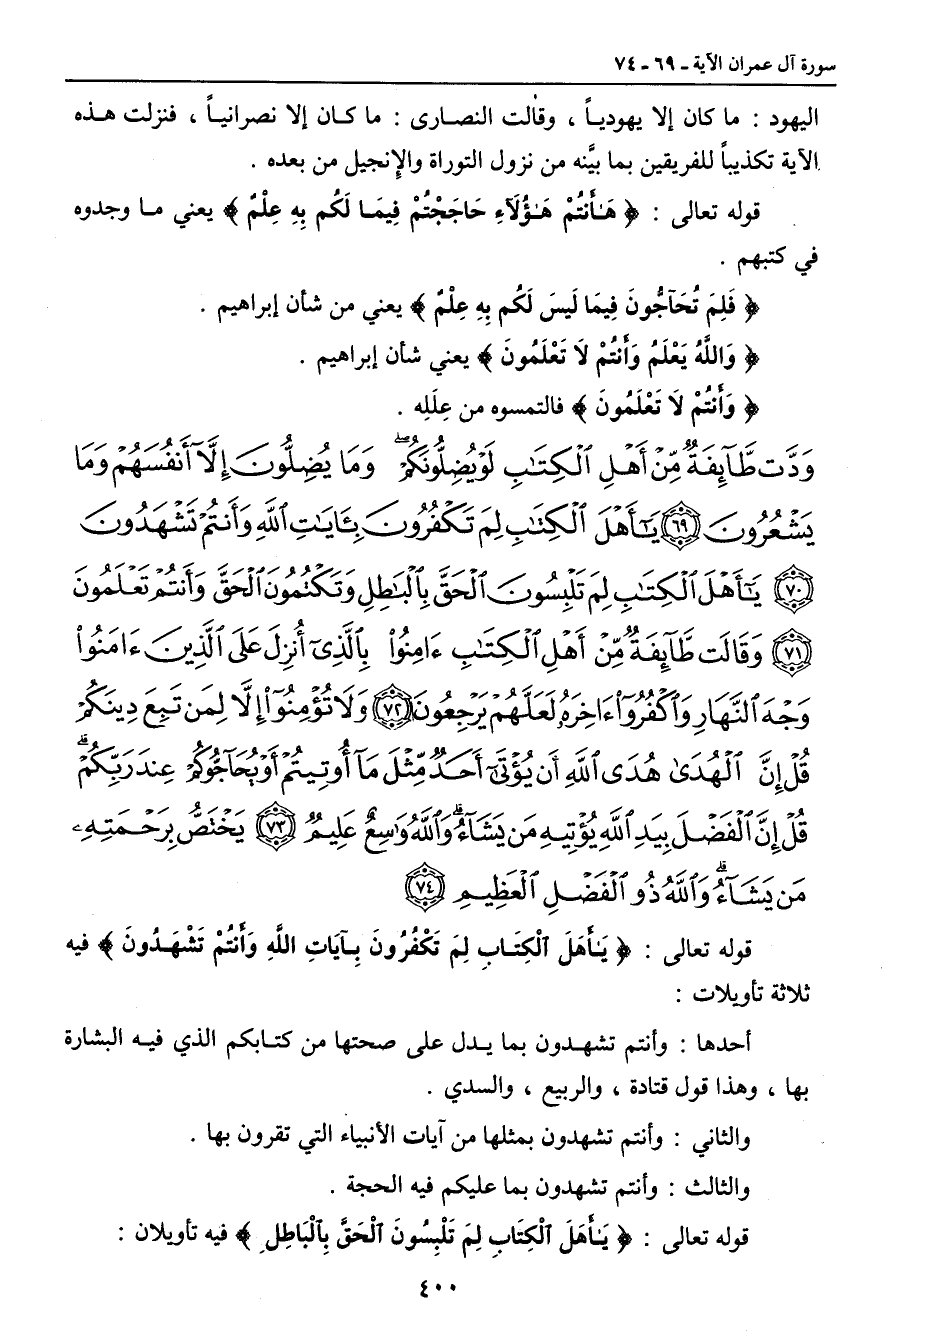 سورة آل عمران الآية ـ ٦٩ ـ ٧٤
اليهود : ما كان إلا يهودياً ، وقالت النصارى : ما كان إلا نصرانياً ، فنزلت هذه
الآية تكذيباً للفريقين بما بيَّنه من نزول التوراة والإنجيل من بعده .
قوله تعالى : ﴿ هَـٰأَنتُمْ هَـٰؤُلَاءِ حَاجَجْتُمْ فِيمَا لَكُم بِهِ عِلْمٌ ﴾ يعني ما وجدوه
في كتبهم .
﴿ فَلِمَ تُحَآجُّونَ فِيمَا لَيسَ لَكُم بِهِ عِلْمٌ ﴾ يعني من شأن إبراهيم .
﴿ وَاللَّهُ يَعْلَمُ وَأَنتُمْ لَا تَعْلَمُونَ ﴾ يعني شأن إبراهيم .
﴿ وَأَنتُمْ لَا تَعْلَمُونَ ﴾ فالتمسوه من عِلَلِه .
وَدَّت طَّآئِفَةٌ مِّنْ أَهْلِ ٱلْكِتَـٰبِ لَوْ يُضِلُّونَكُمْۖ وَمَا يُضِلُّونَ إِلَّآ أَنفُسَهُمْ وَمَا
يَشْعُرُونَ ﴿٦٩﴾ يَـٰٓأَهْلَ ٱلْكِتَـٰبِ لِمَ تَكْفُرُونَ بِـَٔايَـٰتِ ٱللَّهِ وَأَنتُمْ تَشْهَدُونَ
﴿٧٠﴾ يَـٰٓأَهْلَ ٱلْكِتَـٰبِ لِمَ تَلْبِسُونَ ٱلْحَقَّ بِٱلْبَـٰطِلِ وَتَكْتُمُونَ ٱلْحَقَّ وَأَنتُمْ تَعْلَمُونَ
﴿٧١﴾ وَقَالَت طَّآئِفَةٌ مِّنْ أَهْلِ ٱلْكِتَـٰبِ ءَامِنُوا۟ بِٱلَّذِىٓ أُنزِلَ عَلَى ٱلَّذِينَ ءَامَنُوا۟
وَجْهَ ٱلنَّهَارِ وَٱكْفُرُوٓا۟ ءَاخِرَهُۥ لَعَلَّهُمْ يَرْجِعُونَ ﴿٧٢﴾ وَلَا تُؤْمِنُوٓا۟ إِلَّا لِمَن تَبِعَ دِينَكُمْ
قُلْ إِنَّ ٱلْهُدَىٰ هُدَى ٱللَّهِ أَن يُؤْتَىٰٓ أَحَدٌ مِّثْلَ مَآ أُوتِيتُمْ أَوْ يُحَآجُّوكُمْ عِندَ رَبِّكُمْۗ
قُلْ إِنَّ ٱلْفَضْلَ بِيَدِ ٱللَّهِ يُؤْتِيهِ مَن يَشَآءُۗ وَٱللَّهُ وَٰسِعٌ عَلِيمٌ ﴿٧٣﴾ يَخْتَصُّ بِرَحْمَتِهِۦ
مَن يَشَآءُۗ وَٱللَّهُ ذُو ٱلْفَضْلِ ٱلْعَظِيمِ ﴿٧٤﴾
قوله تعالى : ﴿ يَـٰأَهْلَ ٱلْكِتَـابِ لِمَ تَكْفُرُونَ بِـآيَاتِ اللَّهِ وَأَنتُمْ تَشْهَدُونَ ﴾ فيه
ثلاثة تأويلات :
أحدها : وأنتم تشهدون بما يدل على صحتها من كتابكم الذي فيه البشارة
بها ، وهذا قول قتادة ، والربيع ، والسدي .
والثاني : وأنتم تشهدون بمثلها من آيات الأنبياء التي تقرون بها .
والثالث : وأنتم تشهدون بما عليكم فيه الحجة .
قوله تعالى : ﴿ يَـٰأَهْلَ ٱلْكِتَابِ لِمَ تَلْبِسُونَ ٱلْحَقَّ بِٱلْبَاطِلِ ﴾ فيه تأويلان :
٤٠٠